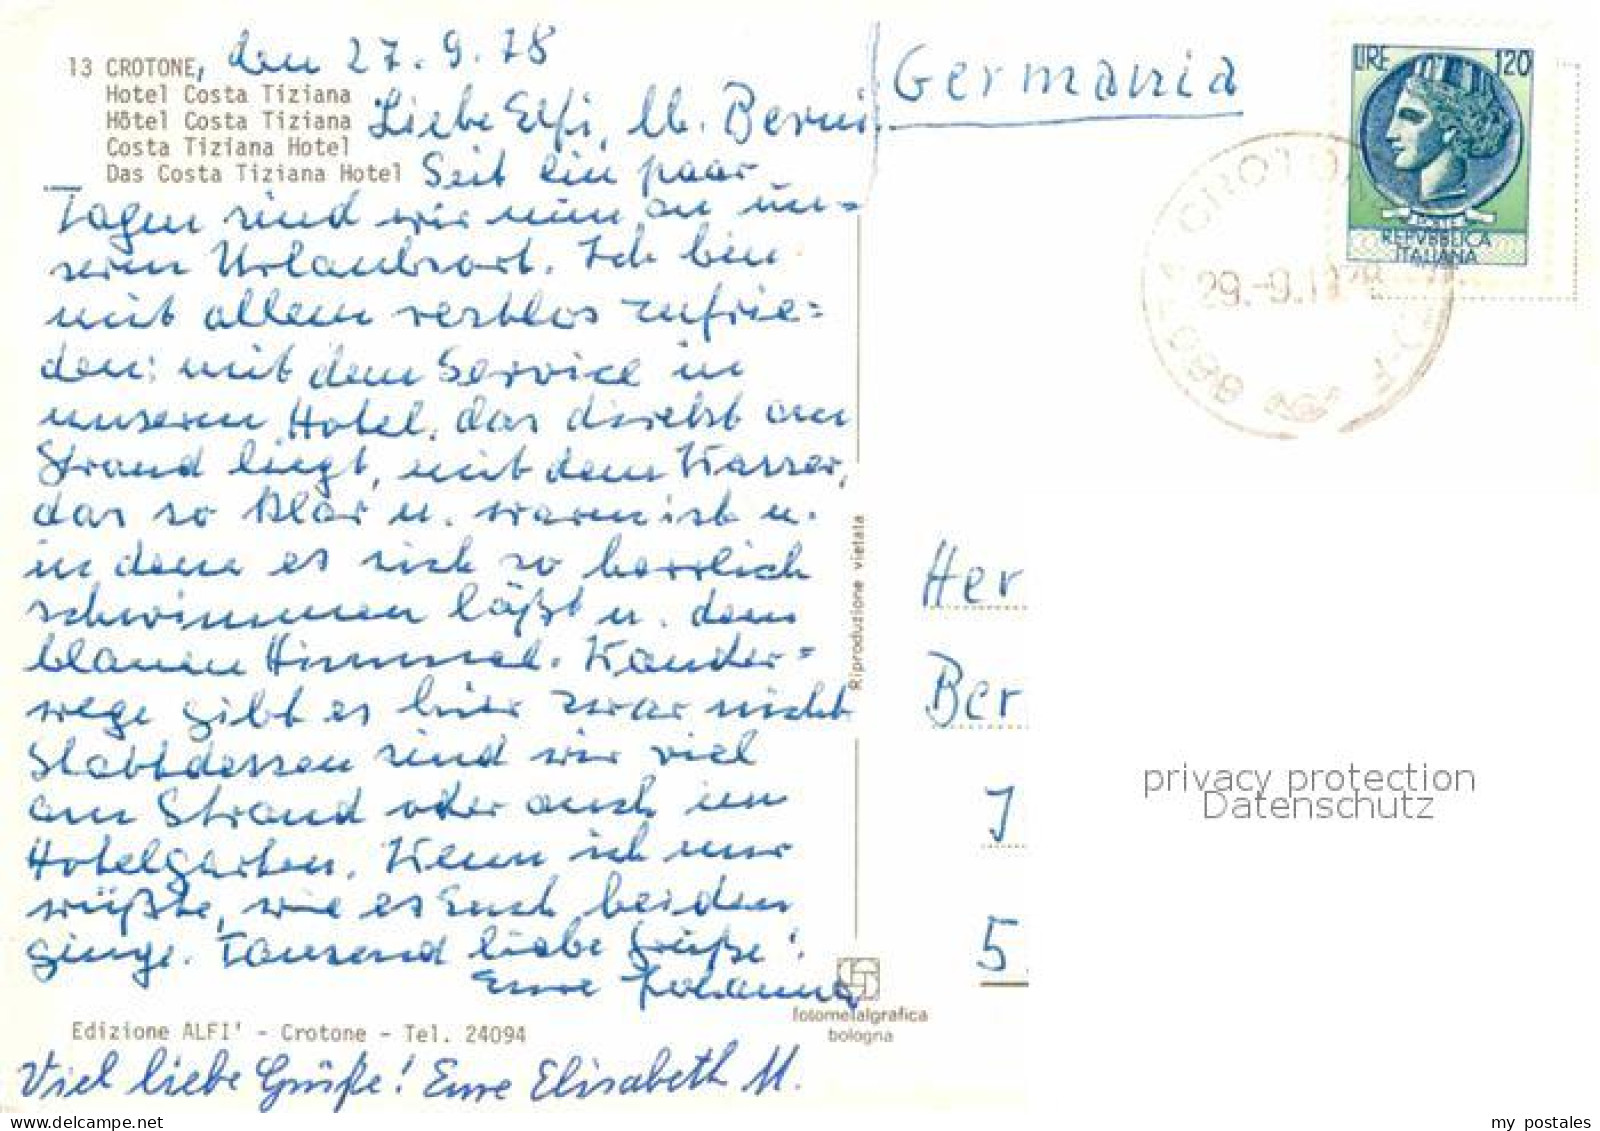 13 CROTONE, den 27. 9. 78
Hotel Costa Tiziana
Hôtel Costa Tiziana
Costa Tiziana Hotel
Das Costa Tiziana Hotel
Liebe Elfi, lb. Berni,
Seit ein paar
Tagen sind wir nun an un=
serm Urlaubsort. Ich bin
mit allem restlos zufrie=
den: mit dem Service in
unserem Hotel, das direkt am
Strand liegt, mit dem Wasser,
das so klar u. warm ist u.
in dem es sich so herrlich
schwimmen läßt u. dem
blauen Himmel. Wander=
wege gibt es hier zwar nicht
Stattdessen sind wir viel
am Strand oder auch im
Hotelgarten. Wenn ich nur
wüßte, wie es Euch beiden
ginge. Tausend liebe Grüße!
Eure Johanna
Edizione ALFI' - Crotone - Tel. 24094
Viel liebe Grüße! Eure Elisabeth M.
Riproduzione vietata
fotometalgrafica
bologna
Germania
LIRE 120
POSTE
REPVBBLICA
ITALIANA
CROTONE
29.-9.1978
Her
Ber
J
5
privacy protection
Datenschutz
my postales